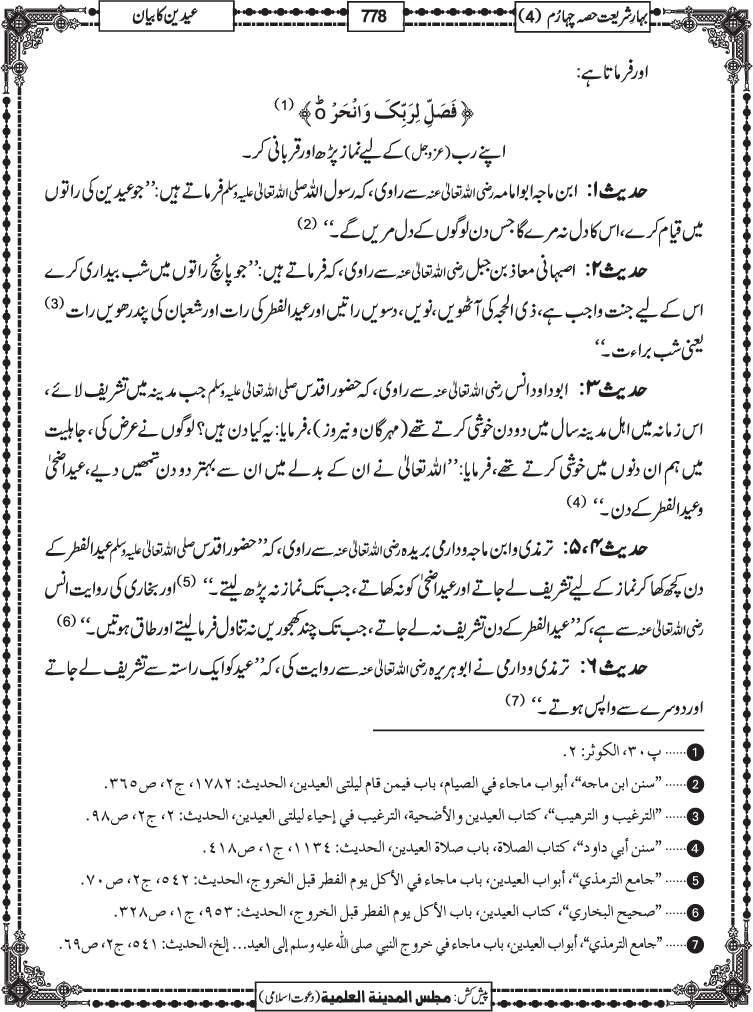 بہارِ شریعت حصہ چہارم (4)
778
عیدین کا بیان
اور فرماتا ہے:
﴿ فَصَلِّ لِرَبِّکَ وَانْحَرْ ؕ﴾ (1)
اپنے رب (عزوجل) کے لیے نماز پڑھ اور قربانی کر۔
حدیث ۱: ابن ماجہ ابوامامہ رضی اللہ تعالیٰ عنہ سے راوی، کہ رسول اللہ صلی اللہ تعالیٰ علیہ وسلم فرماتے ہیں: ’’جو عیدین کی راتوں
میں قیام کرے، اس کا دل نہ مرے گا جس دن لوگوں کے دل مریں گے۔‘‘ (2)
حدیث ۲: اصبہانی معاذ بن جبل رضی اللہ تعالیٰ عنہ سے راوی، کہ فرماتے ہیں: ’’جو پانچ راتوں میں شب بیداری کرے
اس کے لیے جنت واجب ہے، ذی الحجہ کی آٹھویں، نویں، دسویں راتیں اور عیدالفطر کی رات اور شعبان کی پندرھویں رات (3)
یعنی شب براءت۔‘‘
حدیث ۳: ابو داود انس رضی اللہ تعالیٰ عنہ سے راوی، کہ حضور اقدس صلی اللہ تعالیٰ علیہ وسلم جب مدینہ میں تشریف لائے،
اس زمانہ میں اہل مدینہ سال میں دو دن خوشی کرتے تھے (مہرگان و نیروز)، فرمایا: یہ کیا دن ہیں؟ لوگوں نے عرض کی، جاہلیت
میں ہم ان دنوں میں خوشی کرتے تھے، فرمایا: ’’اللہ تعالیٰ نے ان کے بدلے میں ان سے بہتر دو دن تمھیں دیے، عید اضحیٰ
و عیدالفطر کے دن۔‘‘ (4)
حدیث ۴،۵: ترمذی و ابن ماجہ و دارمی بریدہ رضی اللہ تعالیٰ عنہ سے راوی، کہ ’’حضور اقدس صلی اللہ تعالیٰ علیہ وسلم عیدالفطر کے
دن کچھ کھا کر نماز کے لیے تشریف لے جاتے اور عید اضحیٰ کو نہ کھاتے، جب تک نماز نہ پڑھ لیتے۔‘‘ (5) اور بخاری کی روایت انس
رضی اللہ تعالیٰ عنہ سے ہے، کہ ’’عیدالفطر کے دن تشریف نہ لے جاتے، جب تک چند کھجوریں نہ تناول فرما لیتے اور طاق ہوتیں۔‘‘ (6)
حدیث ۶: ترمذی و دارمی نے ابو ہریرہ رضی اللہ تعالیٰ عنہ سے روایت کی، کہ ’’عید کو ایک راستہ سے تشریف لے جاتے
اور دوسرے سے واپس ہوتے۔‘‘ (7)
1 ...... پ۳۰، الکوثر: ۲.
2 ...... ’’سنن ابن ماجه‘‘، أبواب ماجاء في الصيام، باب فيمن قام ليلتي العيدين، الحديث: ۱۷۸۲، ج۲، ص۳۶۵.
3 ...... ’’الترغيب و الترهيب‘‘، كتاب العيدين والأضحية، الترغيب في إحياء ليلتي العيدين، الحديث: ۲، ج۲، ص۹۸.
4 ...... ’’سنن أبي داود‘‘، كتاب الصلاة، باب صلاة العيدين، الحديث: ۱۱۳۴، ج۱، ص۴۱۸.
5 ...... ’’جامع الترمذي‘‘، أبواب العيدين، باب ماجاء في الأكل يوم الفطر قبل الخروج، الحديث: ۵۴۲، ج۲، ص۷۰.
6 ...... ’’صحيح البخاري‘‘، كتاب العيدين، باب الأكل يوم الفطر قبل الخروج، الحديث: ۹۵۳، ج۱، ص۳۲۸.
7 ...... ’’جامع الترمذي‘‘، أبواب العيدين، باب ماجاء في خروج النبي صلى الله عليه وسلم إلى العيد... إلخ، الحديث: ۵۴۱، ج۲، ص۶۹.
پیش کش: مجلس المدينة العلمية (دعوت اسلامی)